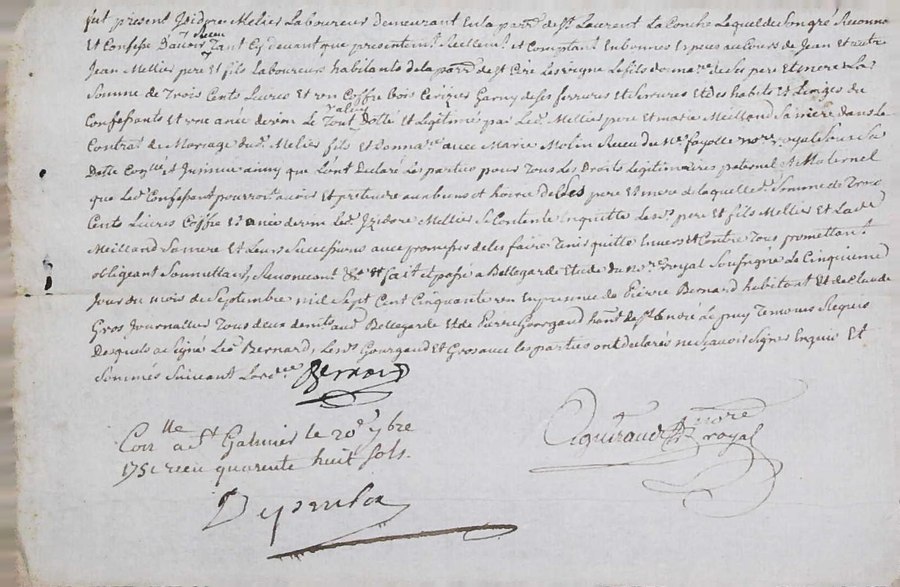 fut present Izidore Melier Laboureur demeurant en la parr.e de St Laurent La Conche Lequel de son gré Reconnu
receu
Et Confesse D'avoir Tant Cy devant que presentem.t Reellem.t et Comptant En bonnes Especes au Cours de Jean Et autre
Jean Mellier pere Et fils Laboureurs habitants de la parr.e de St Cire Les vigne Le fils donna.re de ses pere Et mere La
Somme de Trois Cents Livres Et un Coffre bois Cerizier Garny de ses ferrures Et Serrures Et des habits Et Linges du
Confessants Et une anée de vin Le Tout Dotté Et Legitimé par Led. Mellier pere Et marie Meilland Sa mere dans Le
Contrat de Mariage dud. Melier fils Et donna.re avec Marie Molin Receu du Me fayolle no.re royal Sous Sa
Datte Con.llé Et Jnsinué ainsy que Lont Declaré Les parties pour Tous Les Droits Legitimaires paternel Et Maternel
que Led. Confessant pourroit avoir Et pretendre aux biens et hoirie de Ses pere Et mere de Laquelle d. Somme de Trois
Cents Livres Coffre Et anée de vin Led. Izidore Mellier Se Contente En quitte Lesd. pere Et fils Mellier Et Lad.
Meilland Sa mere Et Leurs Successeurs avec promesse de Les faire Tenir quitte Envers Et Contre Tous promettant
obligeant Soumettant, Renoncant &c Et fait et passé a Bellegarde Etude du no.re royal Soussigné Le Cinquieme
Jour du mois de Septembre mil Sept Cent Cinquante un En presence de Pierre Bernard habitant Et de Claude
Gros Journallier Tous deux dem.t aud. Bellegarde Et de Pierre Gourgaud hant de St André Le puy Temoins Requis
Desquels a Signé Led. Bernard, Lesd. Gourgaud Et Gros avec Les parties ont declarés ne Sçavoir Signer Enquis Et
Sommés Suivant Lord.ce
Bernard
Con.lle a St Galmier le 20e 7bre
1751 receu quarente huit sols.
no.re royal